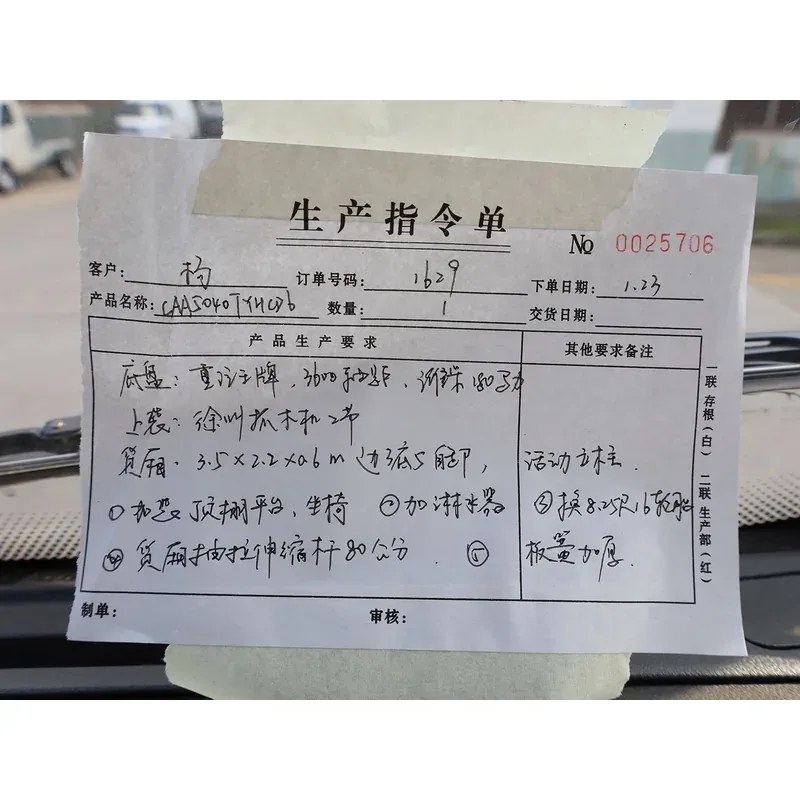 生产指令单
№ 0025706
客户: 杨 订单号码: 1629 下单日期: 1.23
产品名称: CAA5040TYHCD6 数量: 1 交货日期:
产品生产要求 其他要求备注
底盘: 王牌, 3600轴距, 180马力
上装: 徐州抓木机2节
货厢. 3.5×2.2×0.6m 边3底5 活动立柱.
①加装顶棚平台、坐椅 ②加淋水器 ③换8.25R16轮胎
④货厢抽拉伸缩杆80公分. ⑤板簧加厚.
制单: 审核:
一联存根(白) 二联生产部(红)